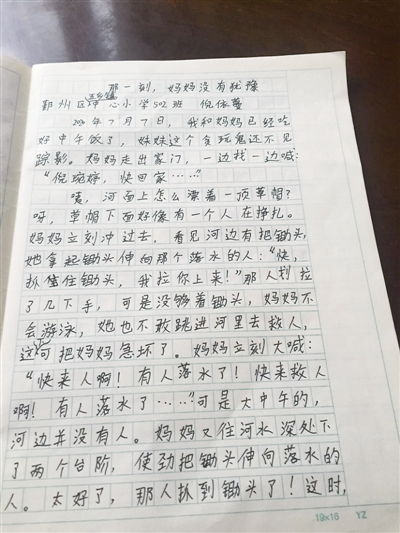 那一刻，妈妈没有犹豫
鄞州区五乡镇中心小学502班 倪依蔓
2020年7月7日，我和妈妈已经吃
好中午饭了，妹妹这个贪玩鬼还不见
踪影。妈妈走出家门，一边找一边喊：
“倪琬婷，快回家……”
咦，河面上怎么漂着一顶草帽？
呀，草帽下面好像有一个人在挣扎。
妈妈立刻冲过去，看见河边有把锄头，
她拿起锄头伸向那个落水的人：“快，
抓住锄头，我拉你上来！”那人划拉
了几下手，可是没够着锄头，妈妈不
会游泳，她也不敢跳进河里去救人，
这可把妈妈急坏了。妈妈立刻大喊：
“快来人啊！有人落水了！快来救人
啊！有人落水了……”可是大中午的，
河边并没有人。妈妈又往河水深处下
了两个台阶，使劲把锄头伸向落水的
人。太好了，那人抓到锄头了！这时，
19×16 YZ